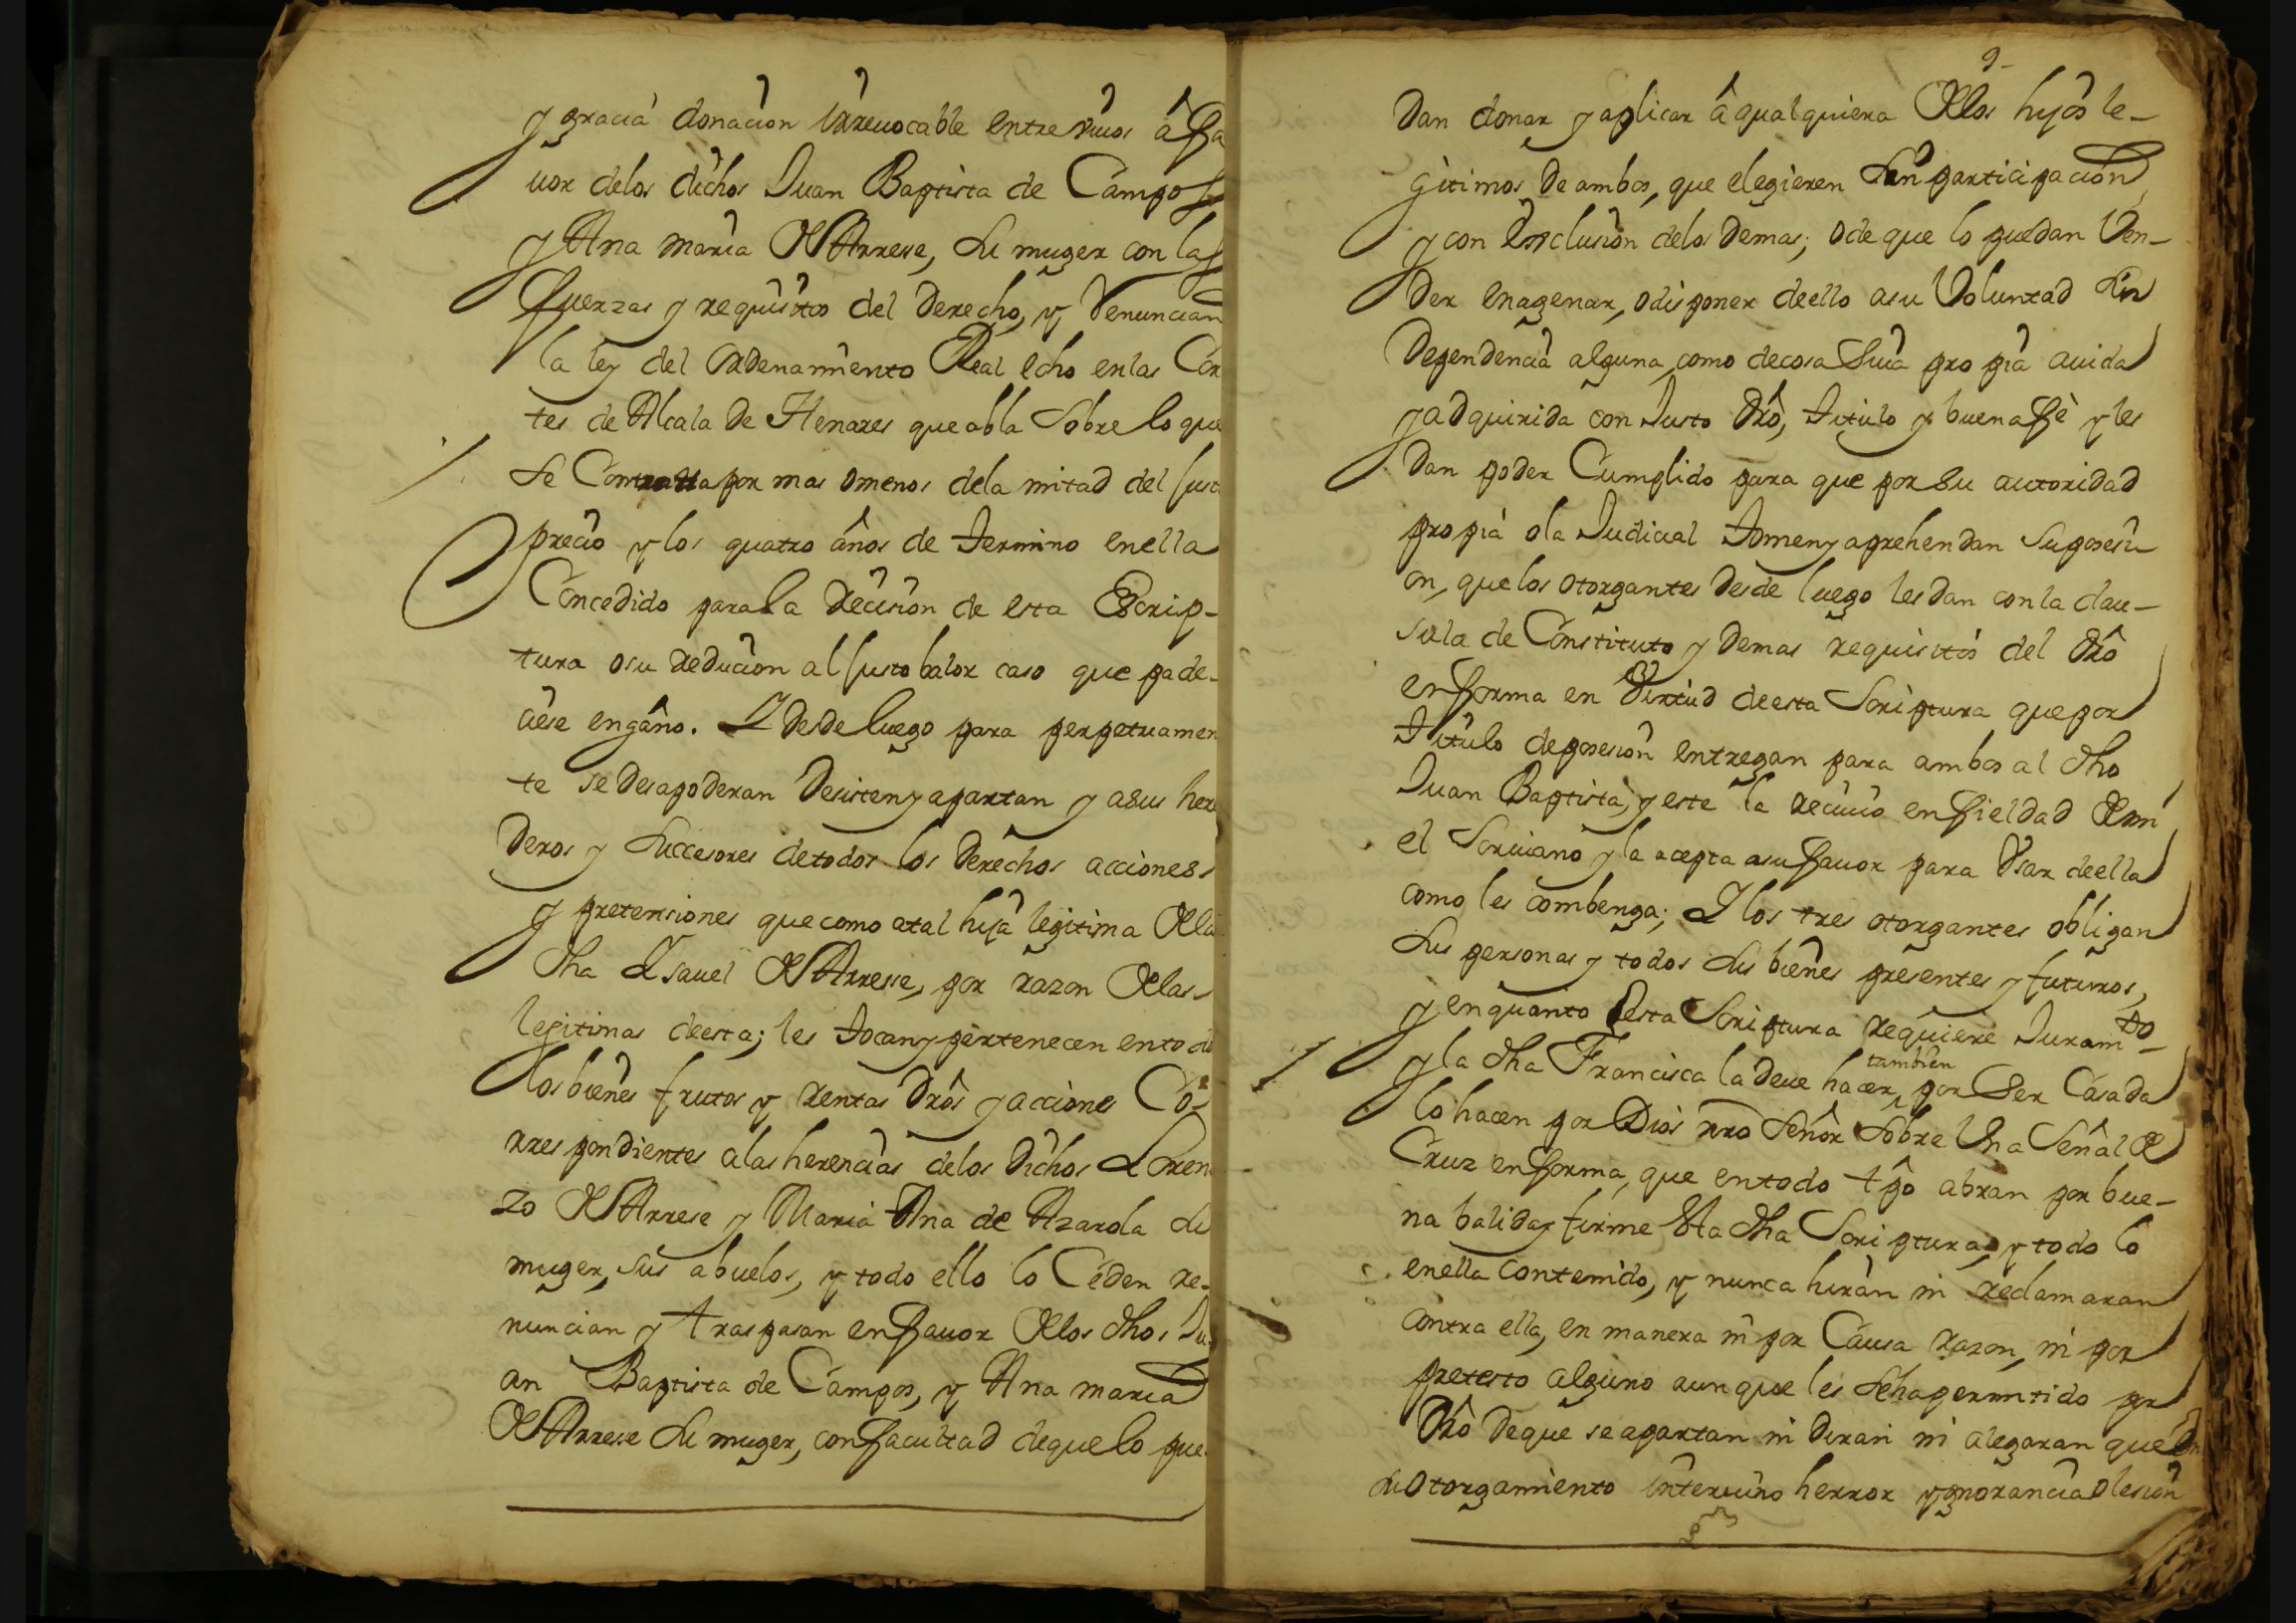 y gracia donacion irrevocable entre viuos â fa
uor delos dichos Juan Baptista de Campos
y Ana maria DArrese, su muger con las
fuerzas y requisitos del Derecho, y Renuncian
la ley del Ordenamiento Real echo enlas Cor
tes de Alcala De Henares que abla Sobre lo que
se Contratta por mas o menos dela mitad del just
precio y los quatro años de Termino enella
Concedido para la Recision de esta Escrip-
tura o su reducion al justo balor caso que pade-
ciese engaño. Y Desde luego para perpetuamen
te se Desapoderan Desisten y apartan y a sus here
Deros y Succesores de todos los Derechos acciones
y pretensiones que como a tal hija legitima Dela
dha Ysauel DArrese, por razon Delas
legitimas de esta; les Tocan y pertenecen en todo
los bienes frutos y rentas Drôs y acciones Co-
rrespondientes a las herencias delos Dichos Loren
zo DArrese y Maria Ana de Azarola su
muger, sus abuelos, y todo ello lo Ceden re-
nuncian y traspasan en fauor Delos dhos Ju
an Baptista de Campos, y Ana maria
DArrese su muger, con facultad de que lo pue
9
Dan donar y aplicar â qualquiera Delos hijos le-
gitimos De ambos, que elegieren sin participacion
y con Exclusion delos Demas; o de que lo puedan Ven-
Der enagenar, o disponer de ello a su Voluntad sin
Dependencia alguna como de cosa Suia propia auida
y adquirida con Justo Drô, Titulo y buena fè y les
Dan poder Cumplido para que por su autoridad
propia o la Judicial Tomen y aprehendan su posesi-
on, que los otorgantes Desde luego les dan con la clau-
sula de Constituto y Demas requisitos del Drô
en forma en Virtud de esta Scriptura que por
Titulo de posesion entregan para ambos al dho
Juan Baptista, y este la reciuio en fieldad Demi
el Scriuano y la acepta a su fauor para Vsar de ella
como les combenga; Y los tres otorgantes obligan
sus personas y todos sus bienes presentes y futuros,
y en quanto Esta Scriptura requiere Juramto-
y la dha Francisca la deue hacer, por Ser Casada
tambien
lo hacen por Dios nro Señor Sobre Una Señal De
Cruz en forma, que en todo tpô abran por bue-
na balida y firme Esta dha Scriptura, y todo lo
en ella contenido, y nunca hiran ni reclamaran
contra ella, en manera ni por Causa razon, ni por
pretesto alguno aunque les Seha permitido pr
Drô De que se apartan ni Diran ni alegaran que en
su Otorgamiento interuino herror ygnorancia o lesion